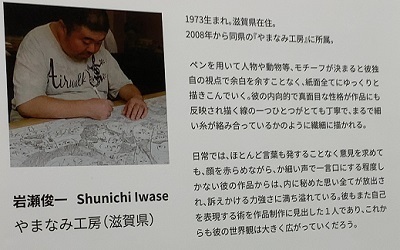 Airwalk
岩瀬俊一 Shunichi Iwase
やまなみ工房(滋賀県)
1973生まれ。滋賀県在住。
2008年から同県の『やまなみ工房』に所属。
ペンを用いて人物や動物等、モチーフが決まると彼独
自の視点で余白を余すことなく、紙面全てにゆっくりと
描きこんでいく。彼の内向的で真面目な性格が作品にも
反映され描く線の一つひとつがとても丁寧で、まるで細
い糸が絡み合っているかのように繊細に描かれる。
日常では、ほとんど言葉も発することなく意見を求めて
も、顔を赤らめながら、か細い声で一言口にする程度し
かない彼の作品からは、内に秘めた思い全てが放出さ
れ、訴えかける力強さに満ち溢れている。彼もまた自己
を表現する術を作品制作に見出した1人であり、これか
らも彼の世界観は大きく広がっていくだろう。